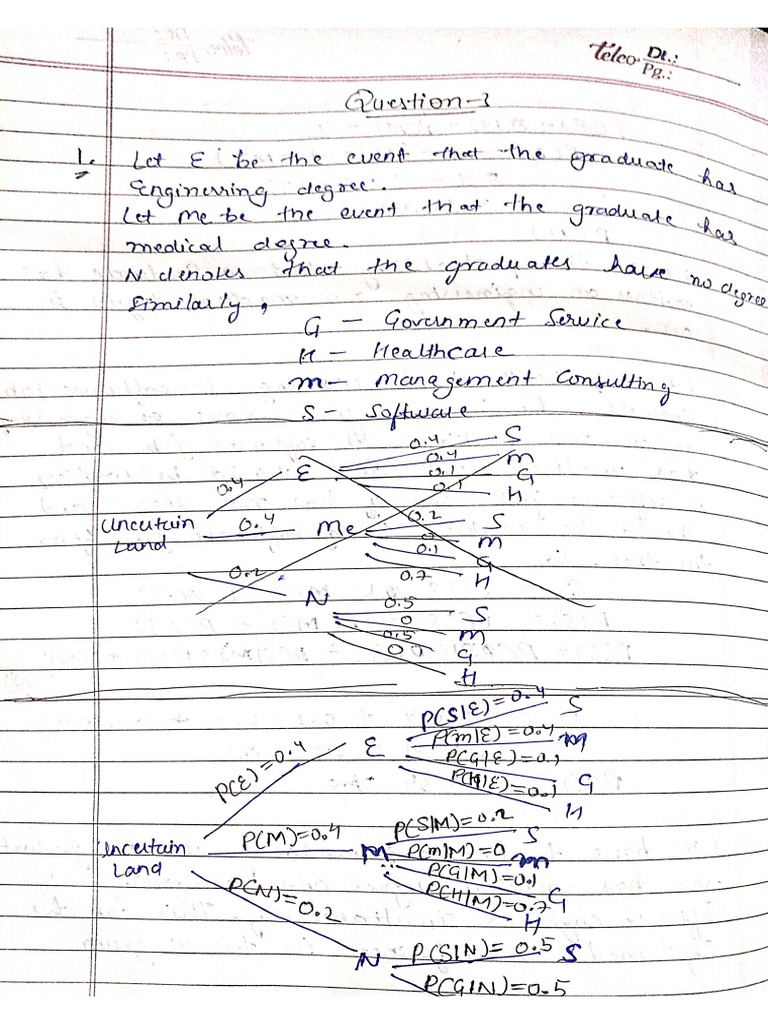 telco Dt.:
Pg.:
Question-3
1. Let E be the event that the graduate has
Engineering degree.
Let Me be the event that the graduate has
medical degree.
N denotes that the graduates have no degree
Similarly,
G - Government Service
H - Healthcare
m - management Consulting
S - Software
0.4 S
0.4 m
0.4 E 0.1 G
0.1 H
Uncertain 0.4 Me 0.2 S
Land 0 m
0.1 G
0.2 0.7 H
N 0.5 S
0 m
0.5 G
0 H
P(S|E)=0.4 S
P(E)=0.4 E P(m|E)=0.4 m
P(G|E)=0.1 G
P(H|E)=0.1 H
P(S|M)=0.2 S
Uncertain P(M)=0.4 M P(m|M)=0 m
Land P(G|M)=0.1 G
P(H|M)=0.7 H
P(N)=0.2
N P(S|N)=0.5 S
P(G|N)=0.5